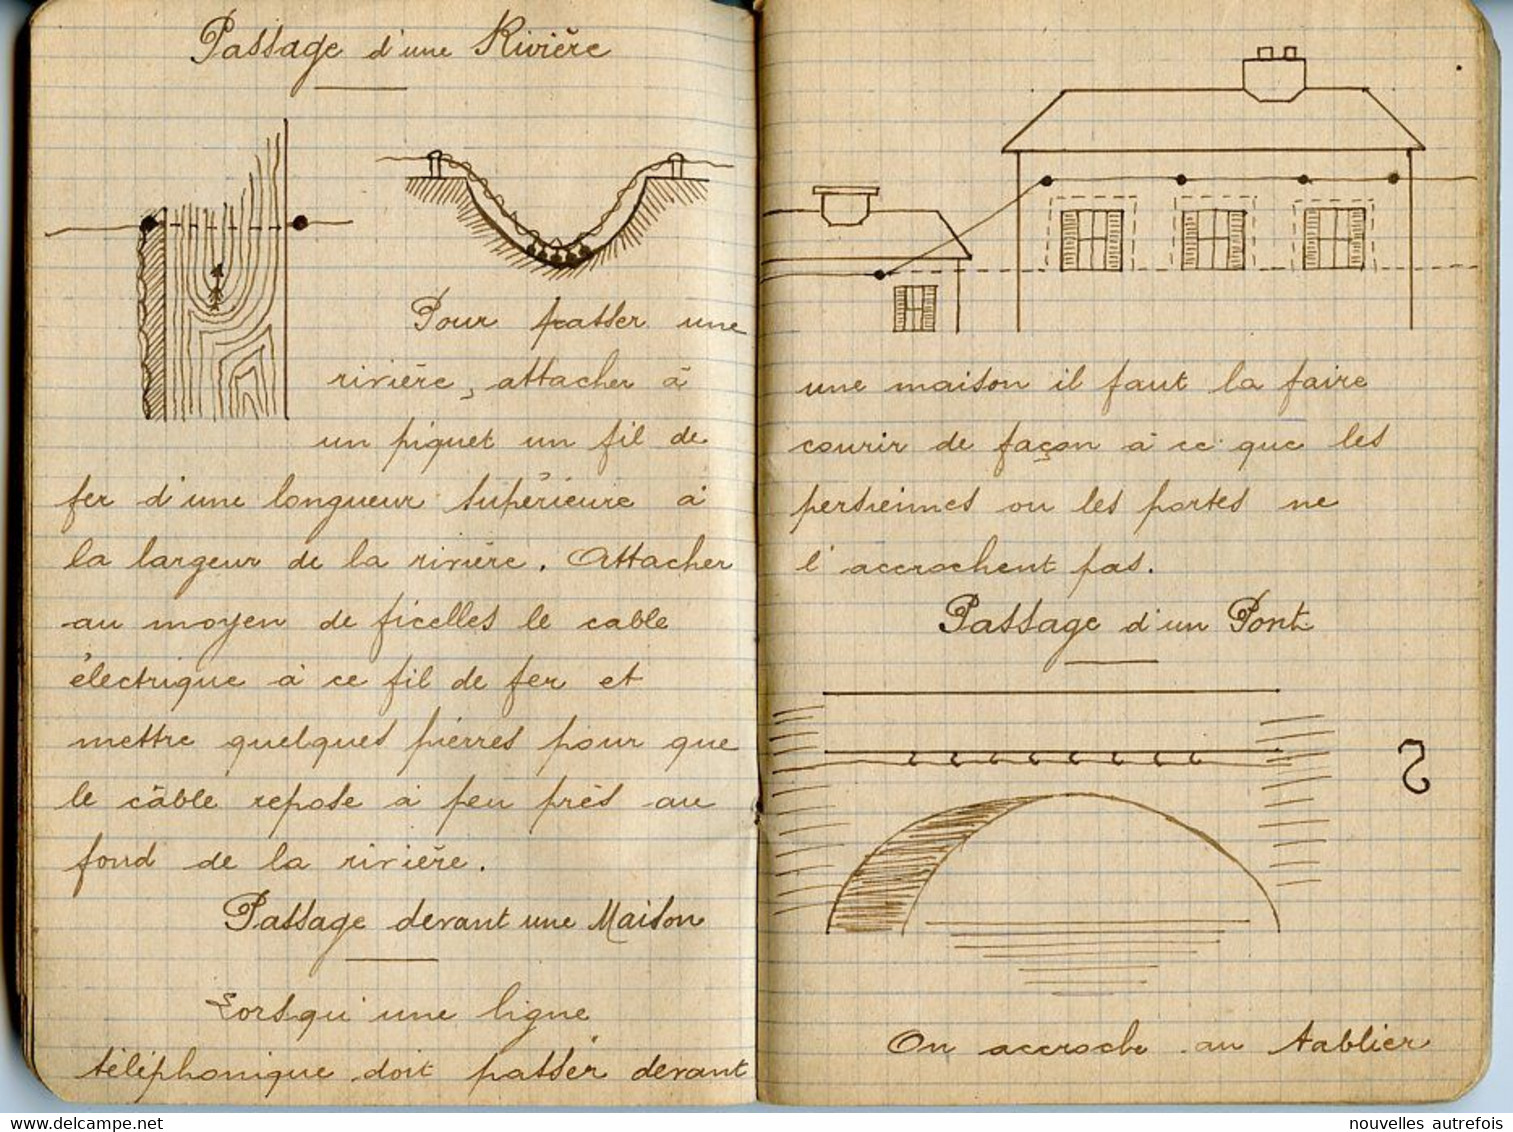 Passage d'une Rivière
Pour passer une
rivière, attacher à
un piquet un fil de
fer d'une longueur supérieure à
la largeur de la rivière. Attacher
au moyen de ficelles le cable
électrique à ce fil de fer et
mettre quelques pierres pour que
le câble repose à peu près au
fond de la rivière.
Passage devant une Maison
Lorsqu'une ligne
téléphonique doit passer devant
une maison il faut la faire
courir de façon à ce que les
persiennes ou les portes ne
l'accrochent pas.
Passage d'un Pont
On accroche au tablier
www.delcampe.net
nouvelles autrefois